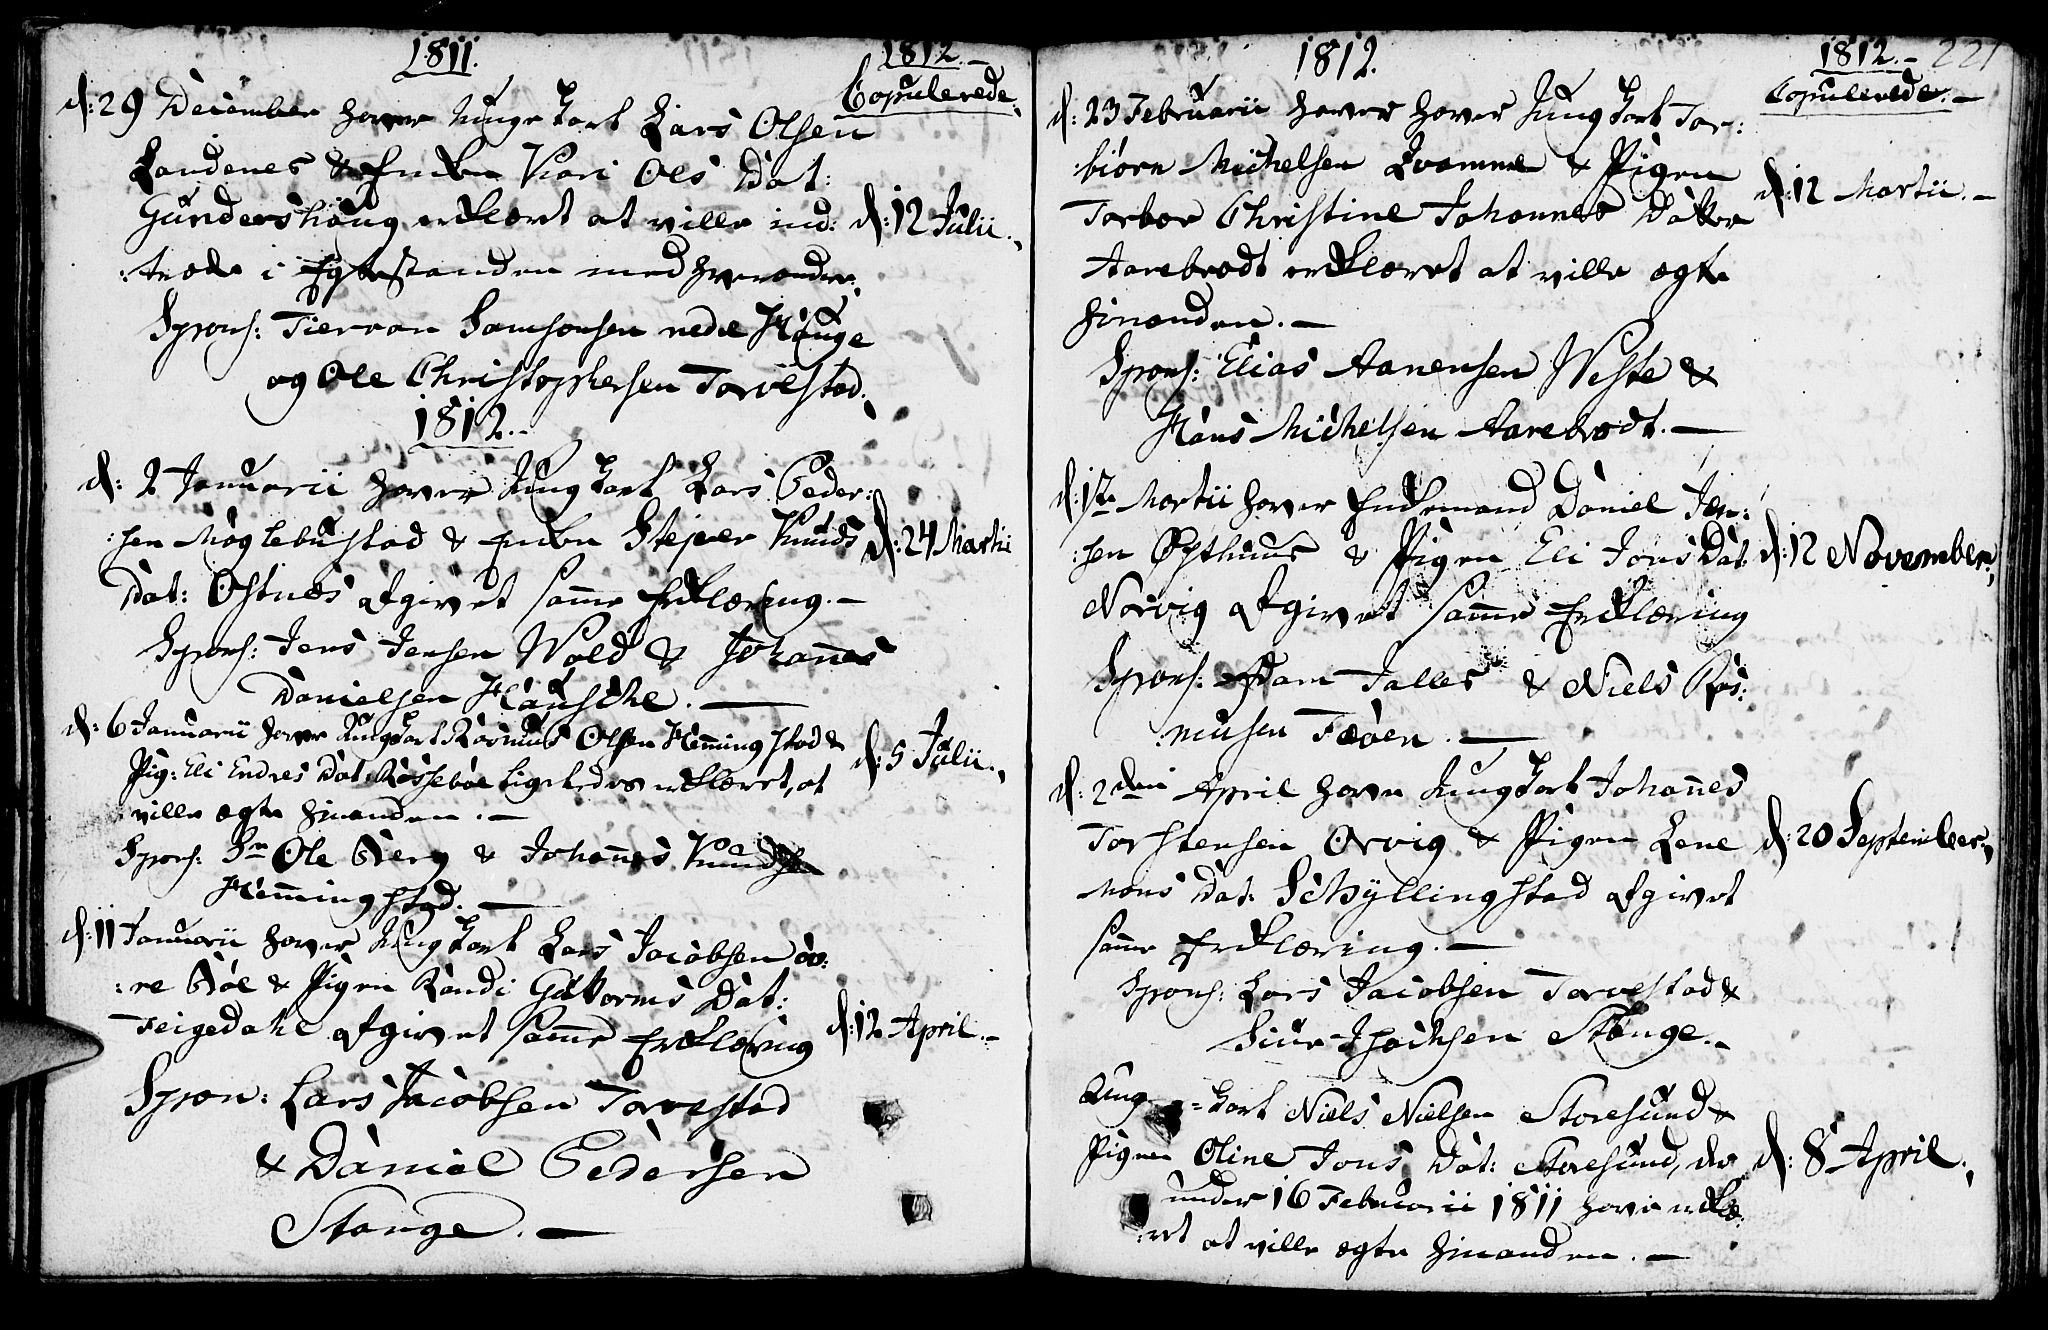 1811.
1812.-
Copulerede.
d: 29 December haver Unge Karl Lars Olsen
Landenes & Enken Kari Ols Dat:
Gundershaug erklæret at ville ind:
d: 12 Julii.
:træde i Egtestanden med hverandre.
Spons: Tierran Samsonsen nedre Hauge
og Ole Christophersen Torvestad.
1812.-
d: 2 Januarii haver Ung Karl Lars Peder:
:sen Maglebustad & Enken Knuds
d: 24 Martii
Dat: Ostnæs afgivet samme Erklæring.-
Spons: Jens Jensen Wold & Johannes
Danielsen Hausche.
d: 6 Januarii haver Ungkarl Rasmus Olsen Hemmingstad &
Pig: Eli Endres Dat: Røssebøe ligeledes erklæret, at
d: 5 Julii.
ville egte hinanden.-
Spons: Sr Ole Berg & Johannes Knudsen
Hemmingstad.
d: 11 Januarii haver Ung Karl Lars Jacobsen øv:
:re Bøe & Pigen Randi Guttorms Dat:
Feigedahl afgivet samme Erklæring
d: 12 April.-
Spon: Lars Jacobsen Torvestad
& Daniel Pedersen
Stange.
1812.
1812.- 221
Copulerede.-
d: 23 Februarii haver Ung Karl Tor:
:biørn Michelsen Qvamme & Pigen
d: 12 Martii.-
Torbor Christine Johannes Datter
Aarebrodt erklæret at ville egte
hinanden.-
Spons: Elias Aanensen Weste &
Hans Michelsen Aarebrodt.-
d: 1ste Martii haver Enkemand Daniel Jen:
:sen Østhuus & Pigen Eli Jons Dat:
d: 12 November.
Norvig afgivet samme Erklæring
Spons: Adam Jalles & Niels Ras:
:musen Fæøen.
d: 2den April haver Ung Karl Johannes
Torstensen Orvig & Pigen Lene
d: 20 September.
Mons Dat: Schyllingstad afgivet
samme Erklæring.-
Spons: Lars Jacobsen Torvestad &
Siur Isachsen Stange.-
Ung=Karl Niels Nielsen Storesund &
Pigen Oline Jons Dat: Storesund, der
d: 8 April.
under 16 Februarii 1811 have erklæ:
:ret at ville egte hinanden.-